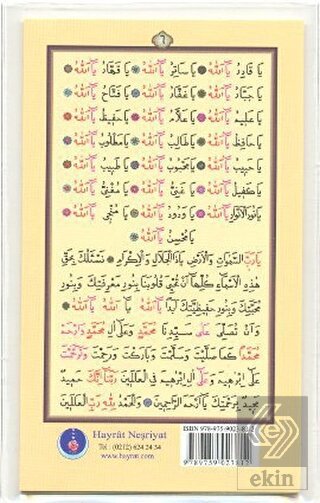 ٦
يَا قَادِرُ يَا اَللّٰهُ يَا سَاتِرُ يَا اَللّٰهُ يَا قَهَّارُ يَا اَللّٰهُ
يَا جَبَّارُ يَا اَللّٰهُ يَا غَفَّارُ يَا اَللّٰهُ يَا فَتَّاحُ يَا اَللّٰهُ
يَا عَلِيمُ يَا اَللّٰهُ يَا عَلَّامُ يَا اَللّٰهُ يَا حَفِيظُ يَا اَللّٰهُ
يَا حَافِظُ يَا اَللّٰهُ يَا طَالِبُ يَا اَللّٰهُ يَا مَطْلُوبُ يَا اَللّٰهُ
يَا حَبِيبُ يَا اَللّٰهُ يَا مَحْبُوبُ يَا اَللّٰهُ يَا طَبِيبُ يَا اَللّٰهُ
يَا كَفِيلُ يَا اَللّٰهُ يَا غَنِىُّ يَا اَللّٰهُ يَا مُغْنِى يَا اَللّٰهُ
يَا نُورَ الْاَنْوَارِ يَا اَللّٰهُ يَا وَدُودُ يَا اَللّٰهُ يَا مُنْجِى يَا اَللّٰهُ
يَا مُحْسِنُ يَا اَللّٰهُ
يَا رَبَّ السَّمٰوَاتِ وَالْاَرْضِ يَا ذَا الْجَلَالِ وَالْاِكْرَامِ نَسْئَلُكَ بِحَقِّ
هٰذِهِ الْاَسْمَاءِ كُلِّهَا اَنْ قُلُوبَنَا بِنُورِ مَعْرِفَتِكَ وَبِنُورِ
مَحَبَّتِكَ وَبِنُورِ اَبَدًا يَا اَللّٰهُ يَا اَللّٰهُ يَا اَللّٰهُ
وَاَنْ تُصَلِّىَ عَلٰى سَيِّدِنَا مُحَمَّدٍ وَعَلٰى اٰلِ مُحَمَّدٍ وَارْحَمْ
مُحَمَّدًا كَمَا صَلَّيْتَ وَسَلَّمْتَ وَبَارَكْتَ وَرَحِمْتَ وَتَرَحَّمْتَ
عَلٰى اِبْرٰهِيمَ وَعَلٰى اٰلِ اِبْرٰهِيمَ فِى الْعَالَمِينَ رَبَّنَا اِنَّكَ حَمِيدٌ
مَجِيدٌ بِرَحْمَتِكَ يَا اَرْحَمَ الرَّاحِمِينَ وَالْحَمْدُ لِلّٰهِ رَبِّ الْعَالَمِينَ
Hayrât Neşriyat
Tel : (0212) 624 24 34
www.hayrat.com
ISBN 978-975-9023-81-2
9789759023812
ekin